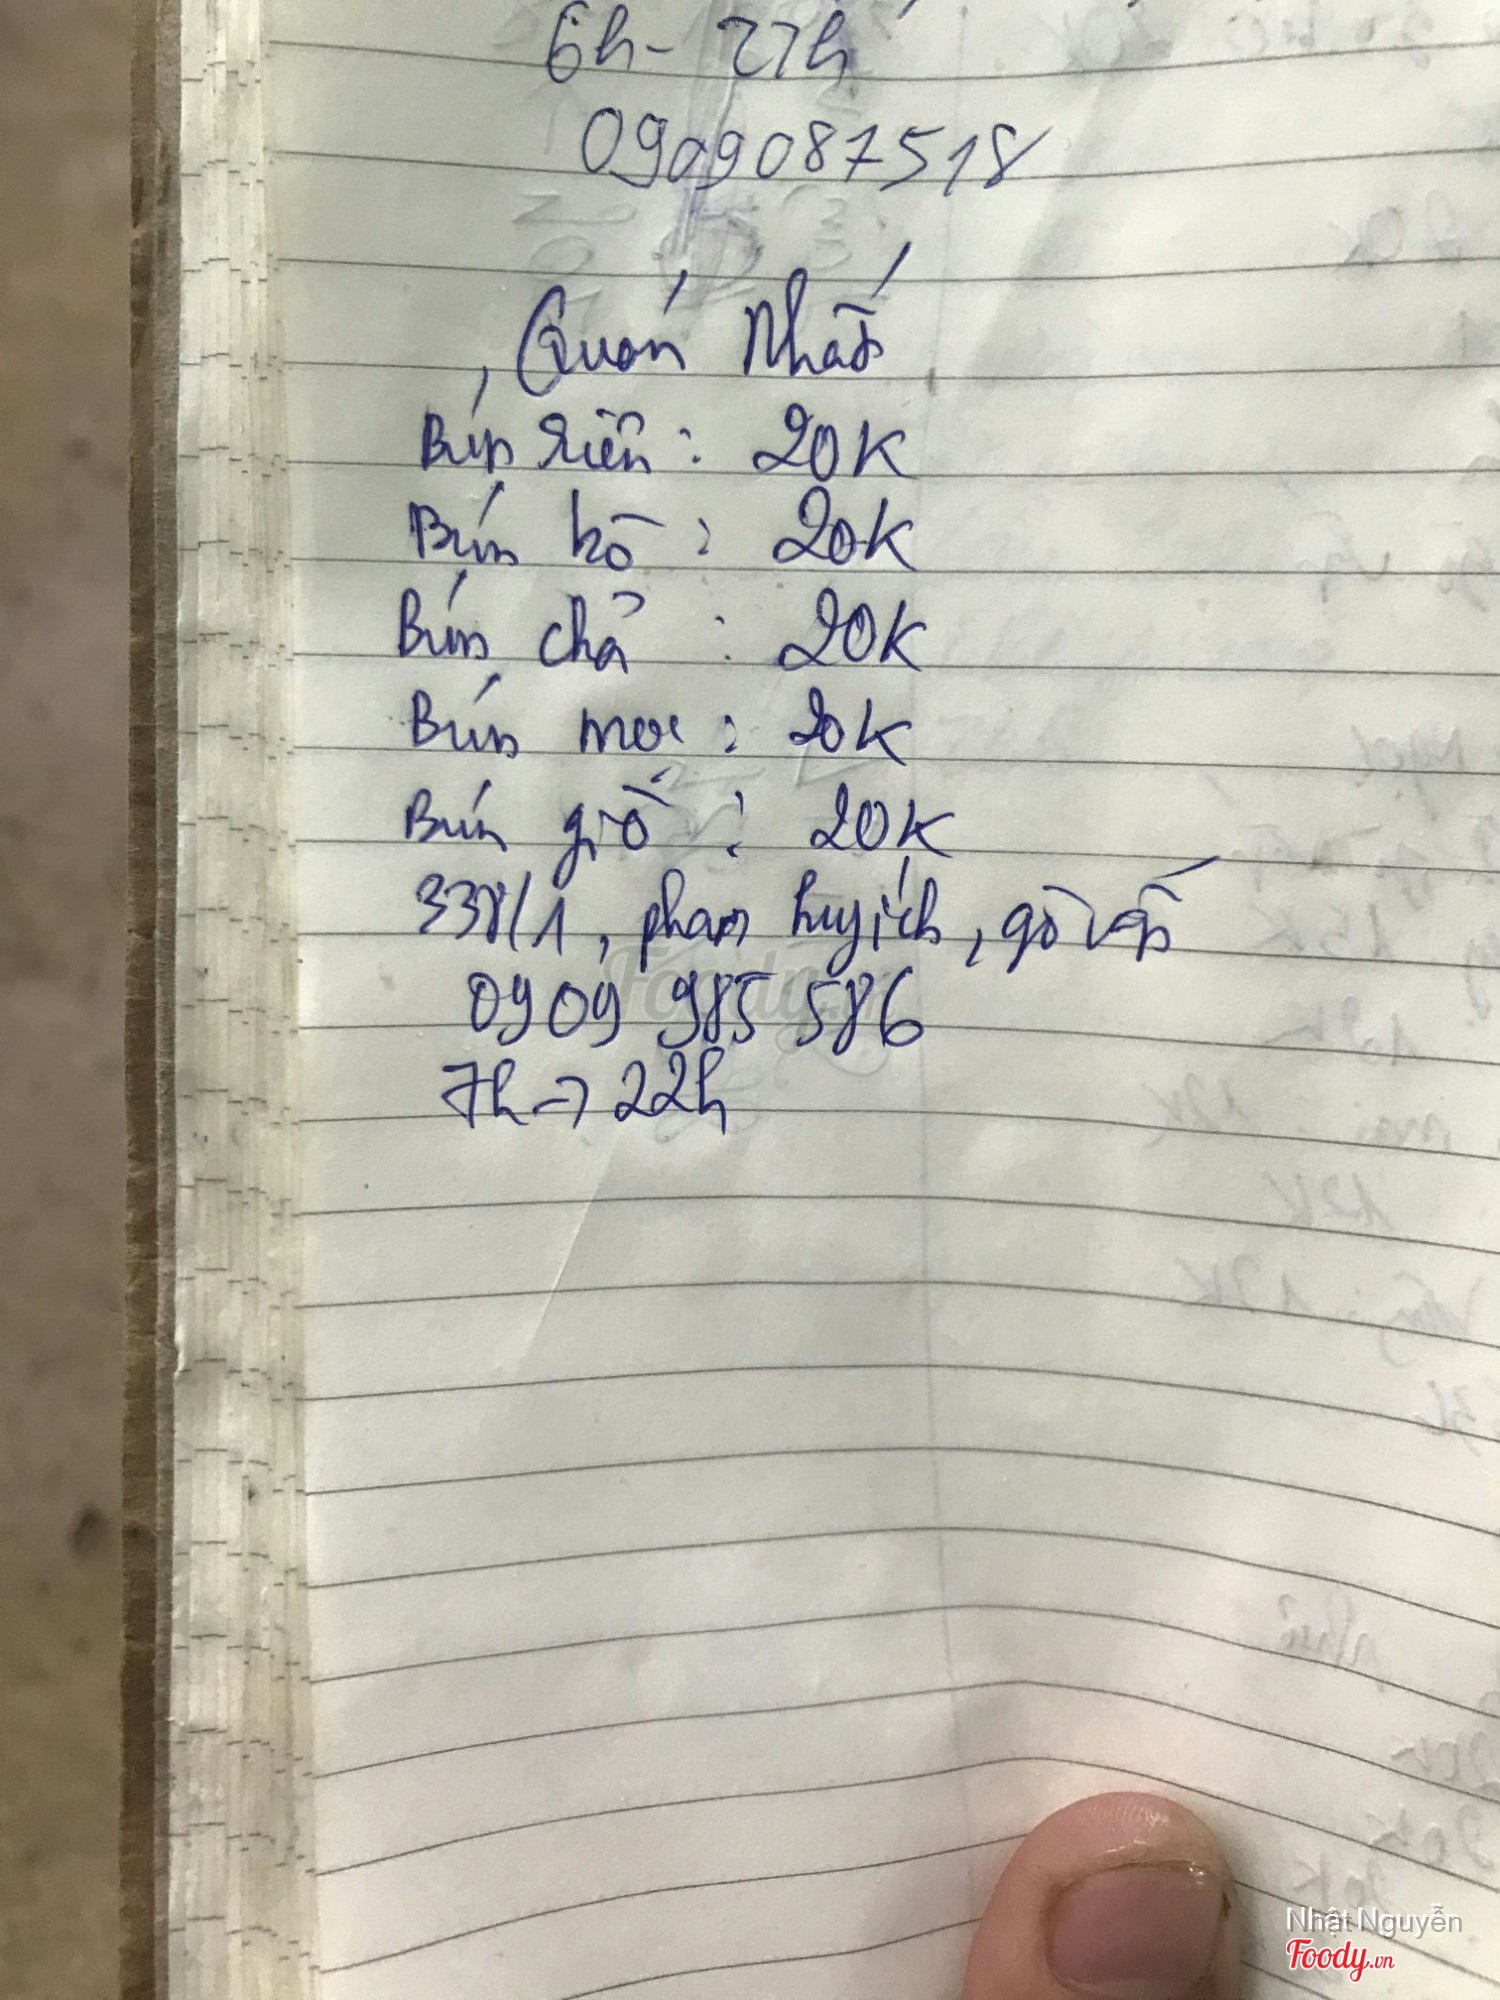 6h - 22h
0909087518
Quán Nhất
Bún riêu : 20K
Bún bò : 20K
Bún chả : 20K
Bún mọc : 20K
Bún giò : 20K
338/1, phạm huy ích, gò vấp
0909 985 586
7h → 22h
Foody.vn
Nhật Nguyễn
Foody.vn